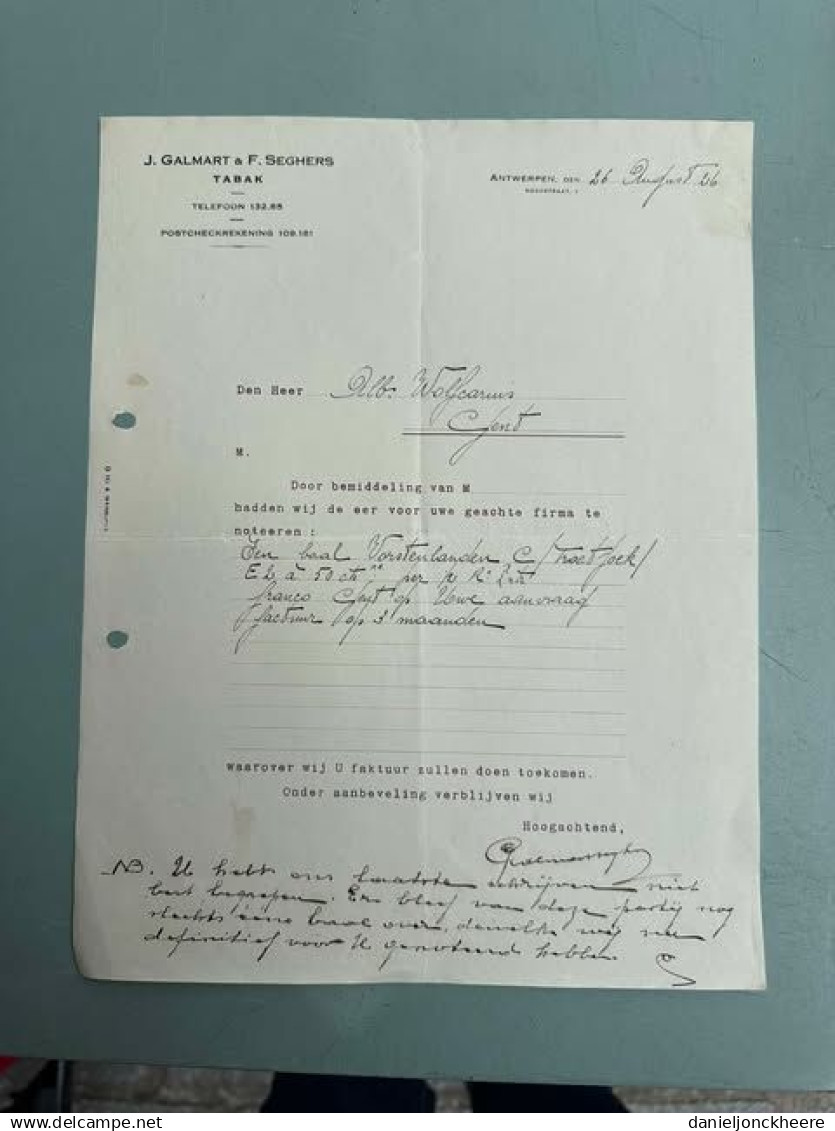 J. GALMART & F. SEGHERS
TABAK
TELEFOON 132.85
POSTCHECKREKENING 109.181
ANTWERPEN, DEN 26 August 26
Den Heer Alb. Wolfcarius
Gent
M.
Door bemiddeling van M
hadden wij de eer voor uwe geachte firma te
noteeren :
Een baal Vorstenlanden C /
E 2 à 50 cts per ½ K°
franco Gent op Uwe aanvraag
factuur op 3 maanden
waarover wij U faktuur zullen doen toekomen.
Onder aanbeveling verblijven wij
Hoogachtend,
NB. U hebt ons laatste schrijven niet
best begrepen. Er bleef van deze partij nog
slechts ééne baal over, dewelke wij nu
definitief voor U genoteerd hebben
danieljonckheere